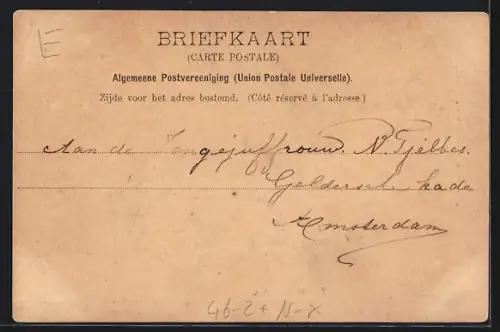 E
BRIEFKAART
(CARTE POSTALE)
Algemeene Postvereeniging (Union Postale Universelle).
Zijde voor het adres bestemd. (Côté réservé à l'adresse.)
Aan de Jongejuffrouw. N. Tjebbes.
Geldersch kade
Amsterdam
46-2+ N-X